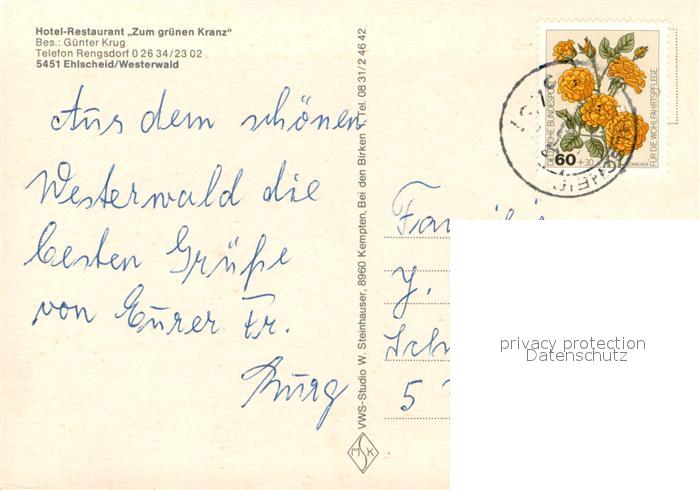 Hotel-Restaurant „Zum grünen Kranz“
Bes.: Günter Krug
Telefon Rengsdorf 0 26 34/23 02
5451 Ehlscheid/Westerwald
Aus dem schönen
Westerwald die
besten Grüße
von Eurer Fr.
Burg
VWS-Studio W. Steinhauser, 8960 Kempten, Bei den Birken 1, Tel. 08 31/2 46 42
MSK
DEUTSCHE BUNDESPOST
60 +30
FÜR DIE WOHLFAHRTSPFLEGE
Y.
5
privacy protection
Datenschutz